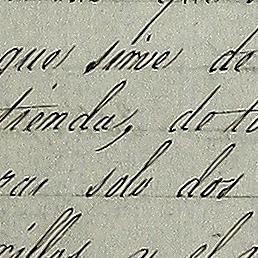 que sirve de
tienda, de to
rai solo dos
rillos y el a